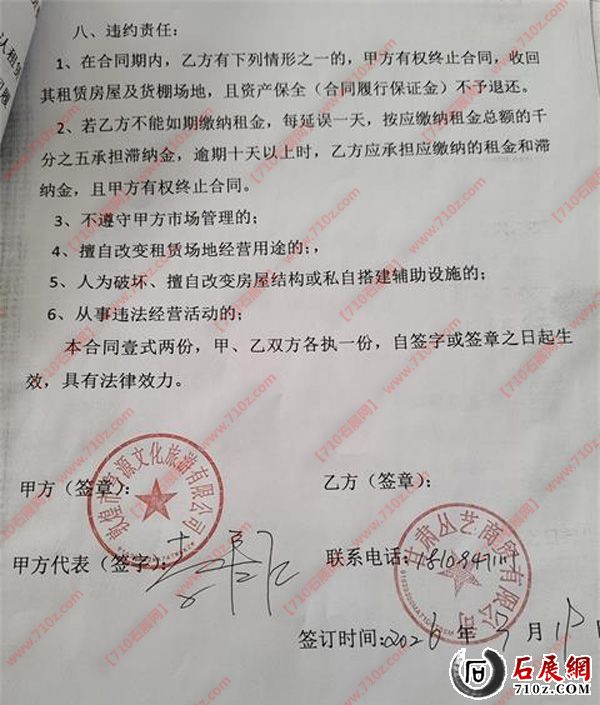 八、违约责任：
1、在合同期内，乙方有下列情形之一的，甲方有权终止合同，收回
其租赁房屋及货棚场地，且资产保全（合同履行保证金）不予退还。
2、若乙方不能如期缴纳租金，每延误一天，按应缴纳租金总额的千
分之五承担滞纳金，逾期十天以上时，乙方应承担应缴纳的租金和滞
纳金，且甲方有权终止合同。
3、不遵守甲方市场管理的；
4、擅自改变租赁场地经营用途的；，
5、人为破坏、擅自改变房屋结构或私自搭建辅助设施的；
6、从事违法经营活动的；
本合同壹式两份，甲、乙双方各执一份，自签字或签章之日起生
效，具有法律效力。
甲方（签章）：
乙方（签章）：
甘肃丛艺商贸有限公司
甲方代表（签字）：
联系电话：
签订时间：2026年 月 日
【710石展网】www.710z.com
石展網
710z.com